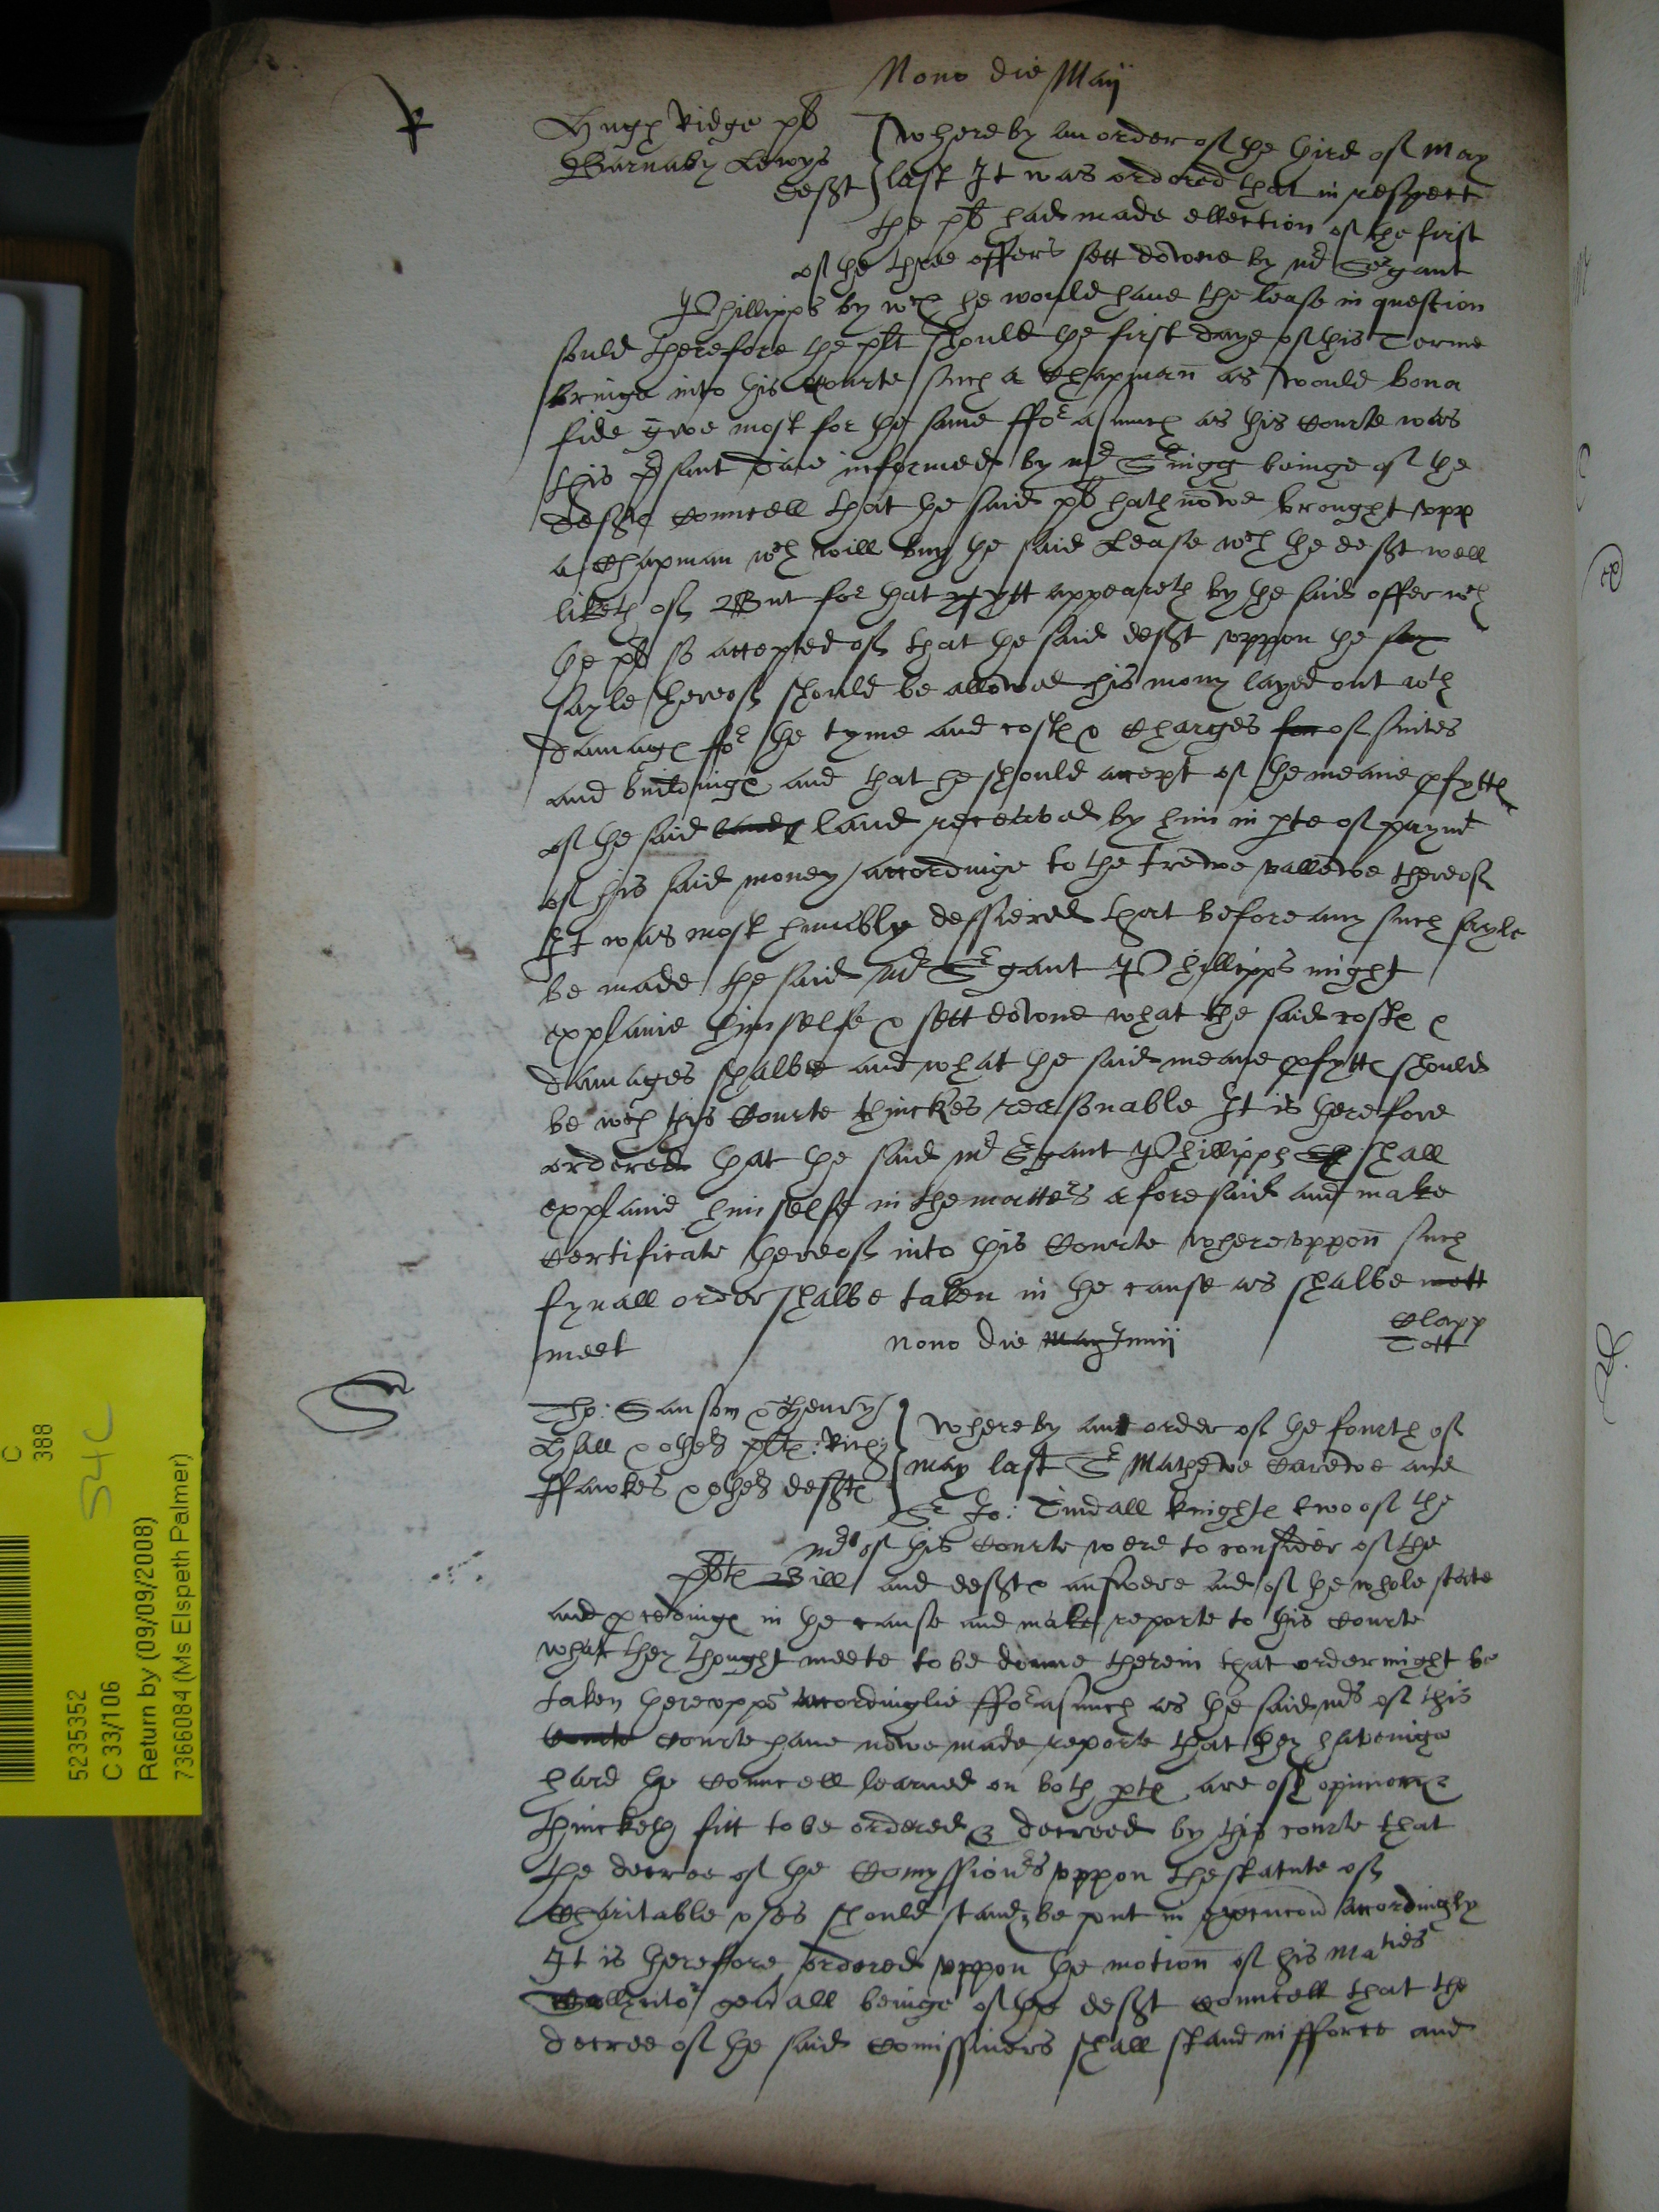 Nono die Maij
Hugh Ridge pl
Barnaby Lewys
deft
whereby an order of the third of May
last It was ordered that in respect
the pl had made ellection of the first
of the three offers sett downe by mr Sergant
Phillipps by wch he would have the lease in question
sould therefore the plt should the first daye of this Terme
bringe into this Courte such a Chapman as would bona
fide gyve most for the same fforasmuch as this Courte was
this psant daie informed by mr being of the
defts Councell that the said pl hath nowe brought upp
a Chapman wch will buy the said Lease wch the deft well
liketh of But for that ytt appeareth by the said offer wch
the pl so accepted of that the said deft uppon the say
sayle thereof should be allowed his mony layed out wth
damages for the tyme and costes & Charges for of suites
and buildinges and that he should accept of the meane pfyttes
of the said land received by him in pte of paymt
of his said money accordinge to the trewe vallewe thereof
It was most humbly dessiered that before any such sayle
be made the said mr Sergant Phillipps might
explaine himselfe & sett downe what the said costes &
damages shalbe and what the said meane pfyttes should
be wch this Courte thinckes reasonable It is therefore
ordered that the said mr Sergant Phillipps shall
explaine himselfe in the matters aforesaid and make
Certificate thereof into this Courte whereuppon such
fynall order shalbe taken in the cause as shalbe mett
meet
Clapp
Tott
nono die May Junij
Tho: Sansom & Henry
Hall & others pltes: Rich:
ffawkes & others deftes
whereby an order of the fourth of
may last Sr Mathewe Carewe and
Sr Jo: Tindall knightes two of the
mrs of this Courte were to consider of the
pltes Bill and deftes answere and of the whole state
and pcedinges in the cause and make reporte to this Courte
what they thought meete to be donne therein that order might be
taken thereuppon accordinglie fforasmuch as the said mrs of this
Courte Courte have nowe made reporte that they havinge
hard the Councell learned on both ptes are of opinion &
thincketh fitt to be ordered & decreed by this courte that
the decree of the Comyssioners uppon the statute of
Charitable uses should stand & be put in execucon accordingly
It is therefore ordered uppon the motion of his Maties
Sollicitor genrall beinge of the deft Councell that the
decree of the said Comissiners shall stand in fforce and
C
388
54C
5235352
C 33/106
Return by (09/09/2008)
7366084 (Ms Elspeth Palmer)